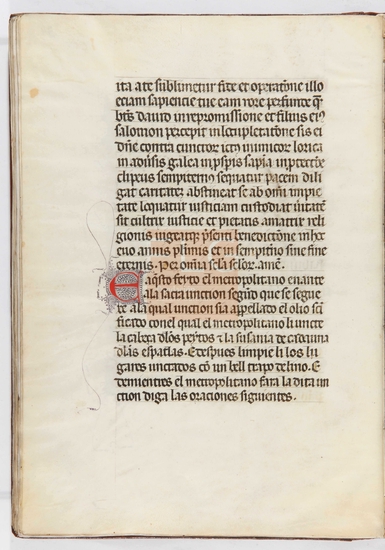 ita a te sublimetur fide et operatiõne illo
etiam sapiencie tue eam rore perfunde q̃
bt̃s dauid in repromissione et filius eiꝰ
salomon percepit in locupletatiõne sis ei
dñe contra cunctor ict9 inimicor lorica
in adũsis galea in ꝓspis sapia in ꝓtectiõe
clipeus sempiterno sequatur pacem dili
gat caritatẽ abstineat se ab om̃i impie
tate loquatur iusticiam custodiat ũitatẽ
sit cultor iusticie et pietatis amator reli
gionis uigeatq̃ p̃senti benedictiõne in hoc
euo annis plurimis et in sempit̃no sine fine
eternis. Per om̃ia sc̃la sc̃lor. amẽ.
E aq̃sto feyto el metropolitano en ante
a la sacra unction segũd que se segue
te a la qual unction sia appellado el olio sc̃i
ficado con el qual el metropolitano li uncte
la cabeça &
dlas espatlas. E despues limpie li los lu
gares unctados cõ un bell trapo de lino. E
demientres el metropolitano fara la dita un
ction diga las oraciones siguientes.